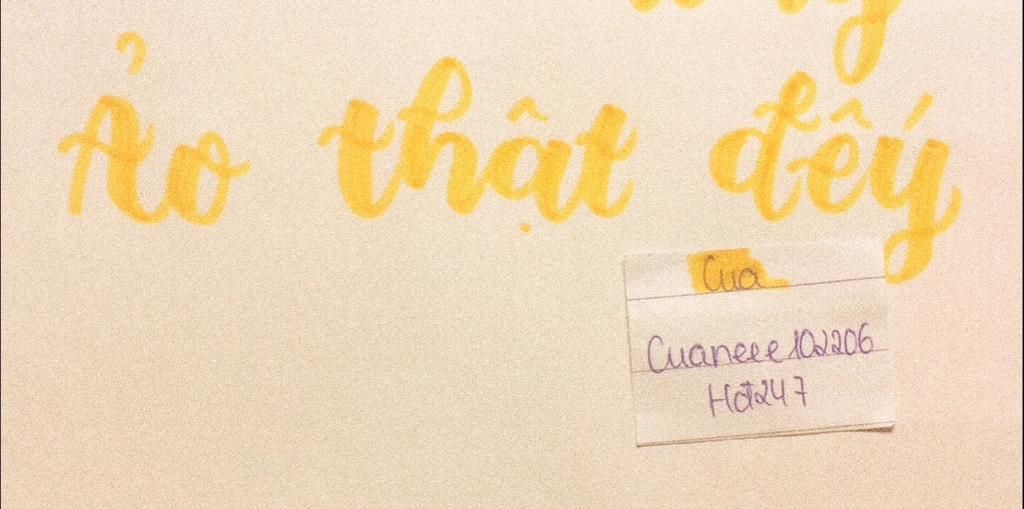 Ảo thật đếý
Cua
Cuaneee102206
Hot247